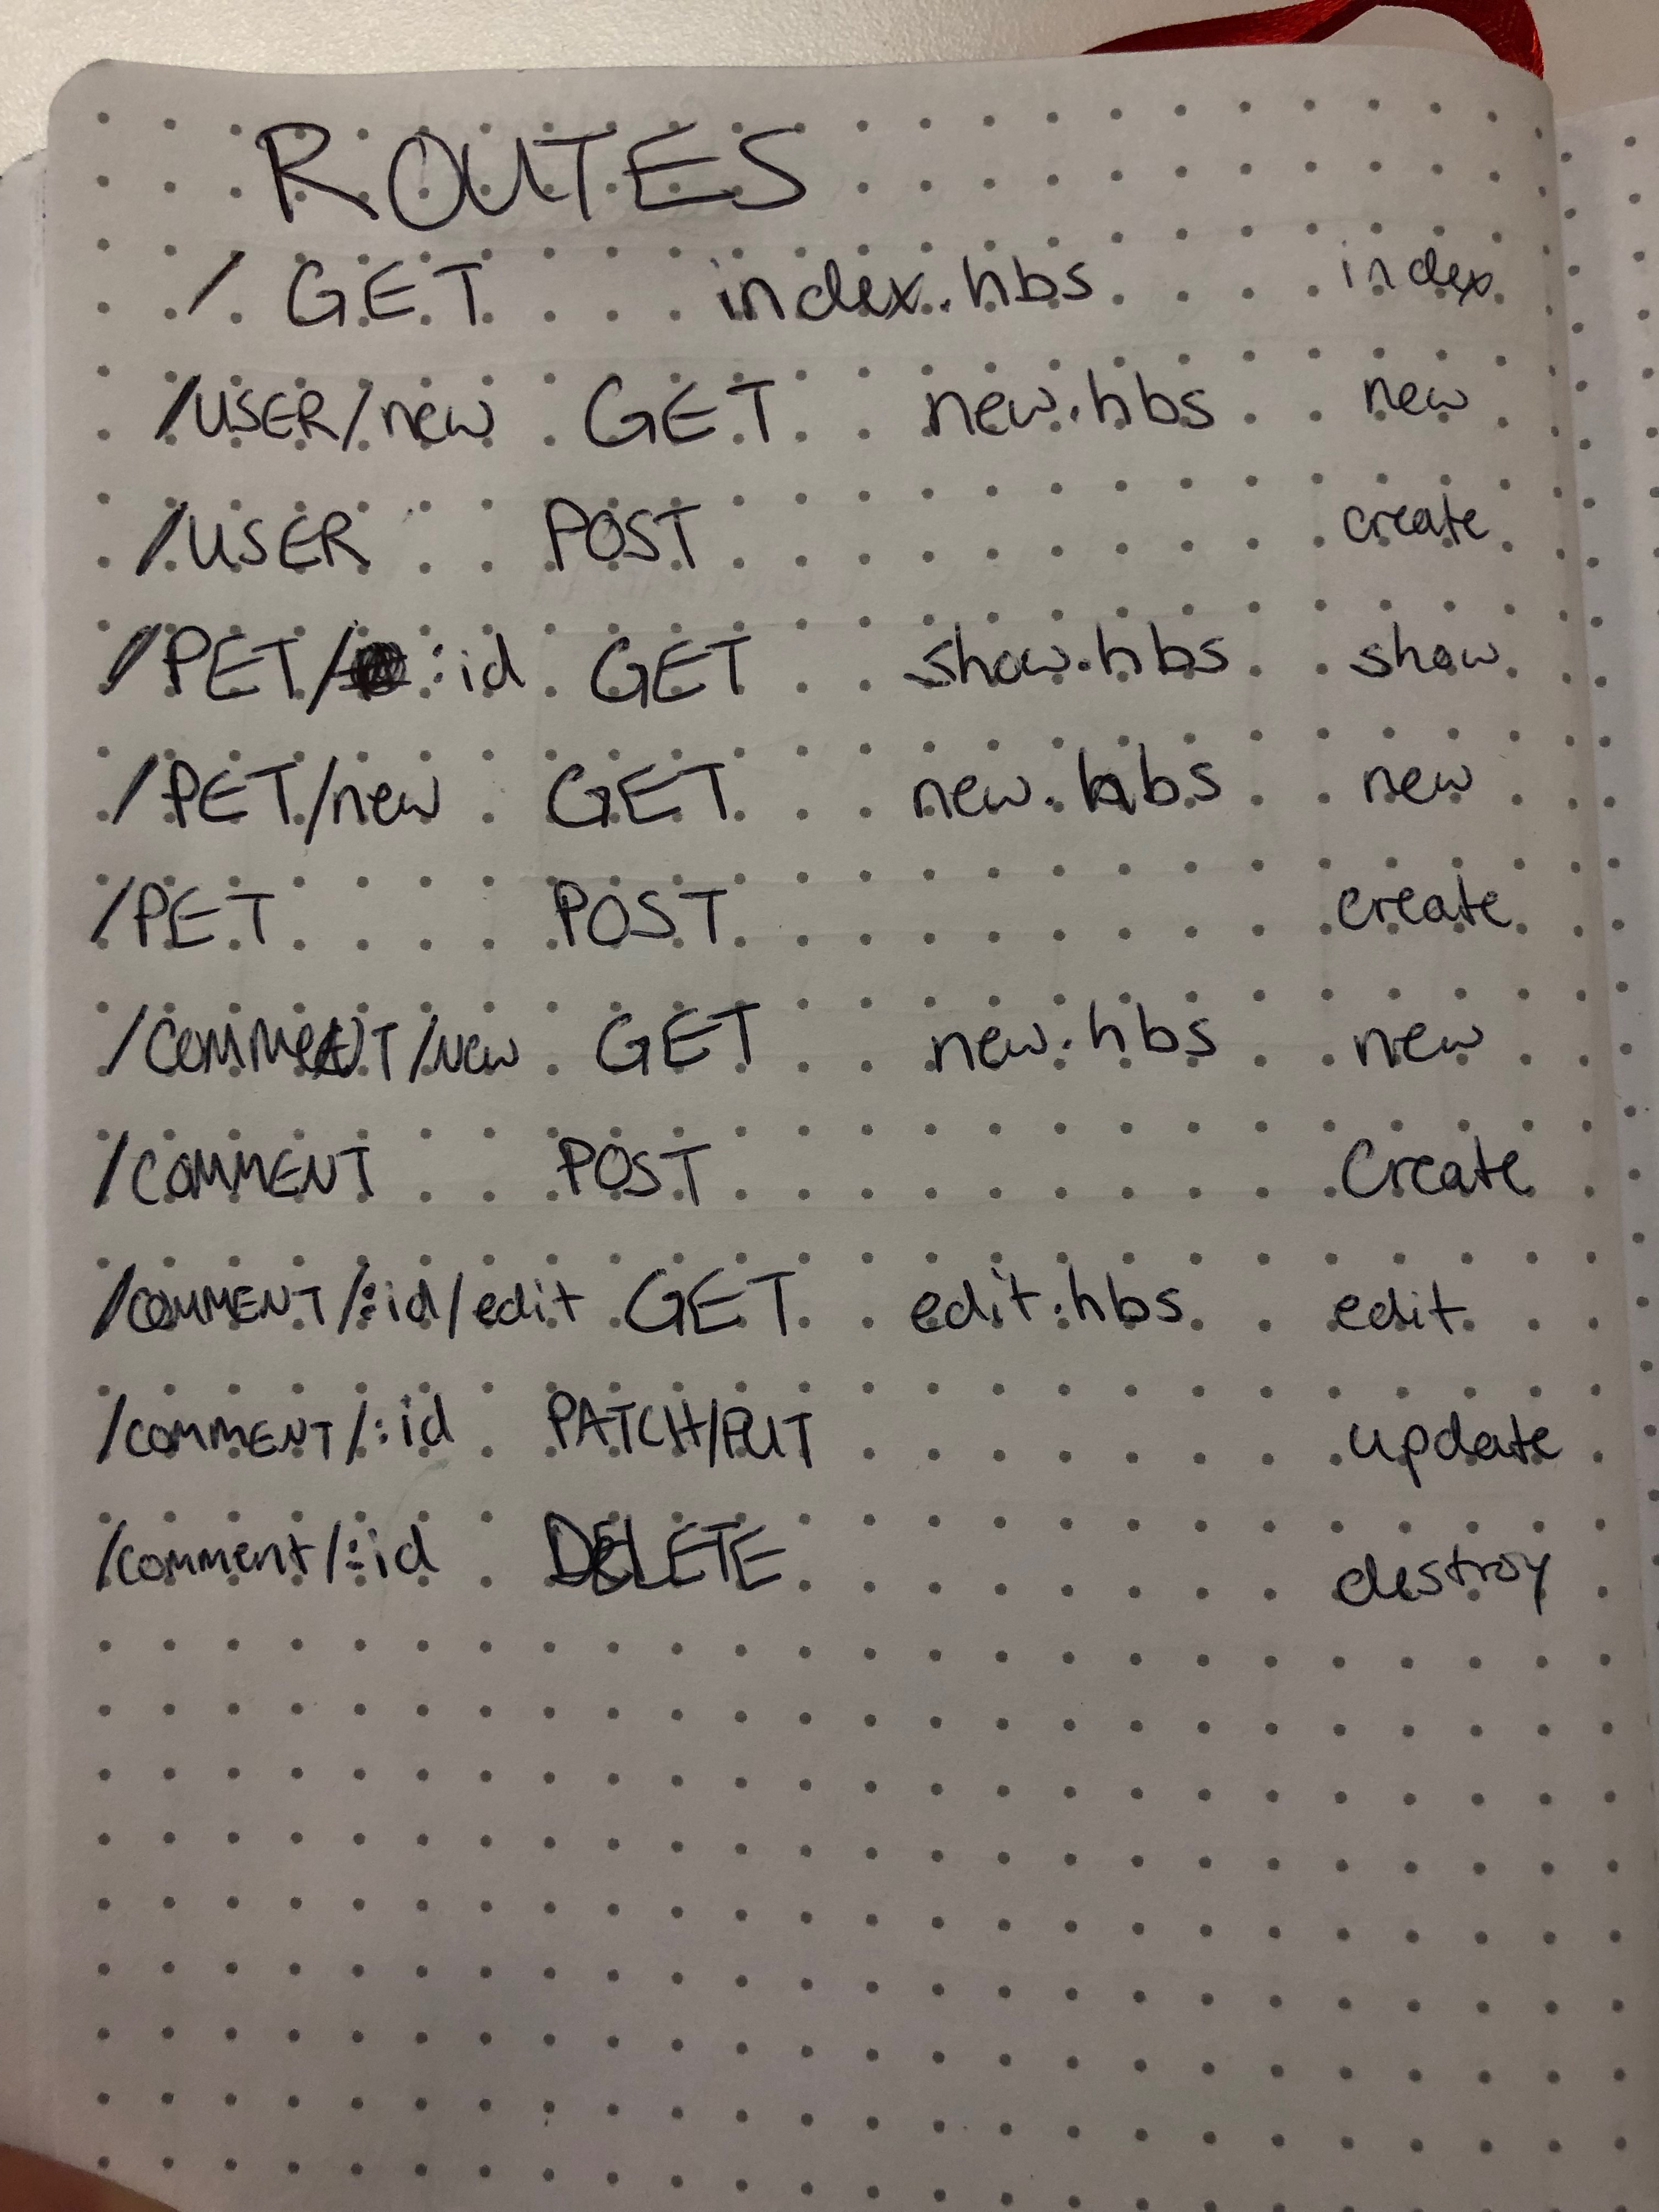 ROUTES
/ GET index.hbs index
/USER/new GET new.hbs new
/USER POST create
/PET/:id GET show.hbs show
/PET/new GET new.hbs new
/PET POST create
/COMMENT/New GET new.hbs new
/COMMENT POST Create
/COMMENT/:id/edit GET edit.hbs edit
/COMMENT/:id PATCH/PUT update
/comment/:id DELETE destroy